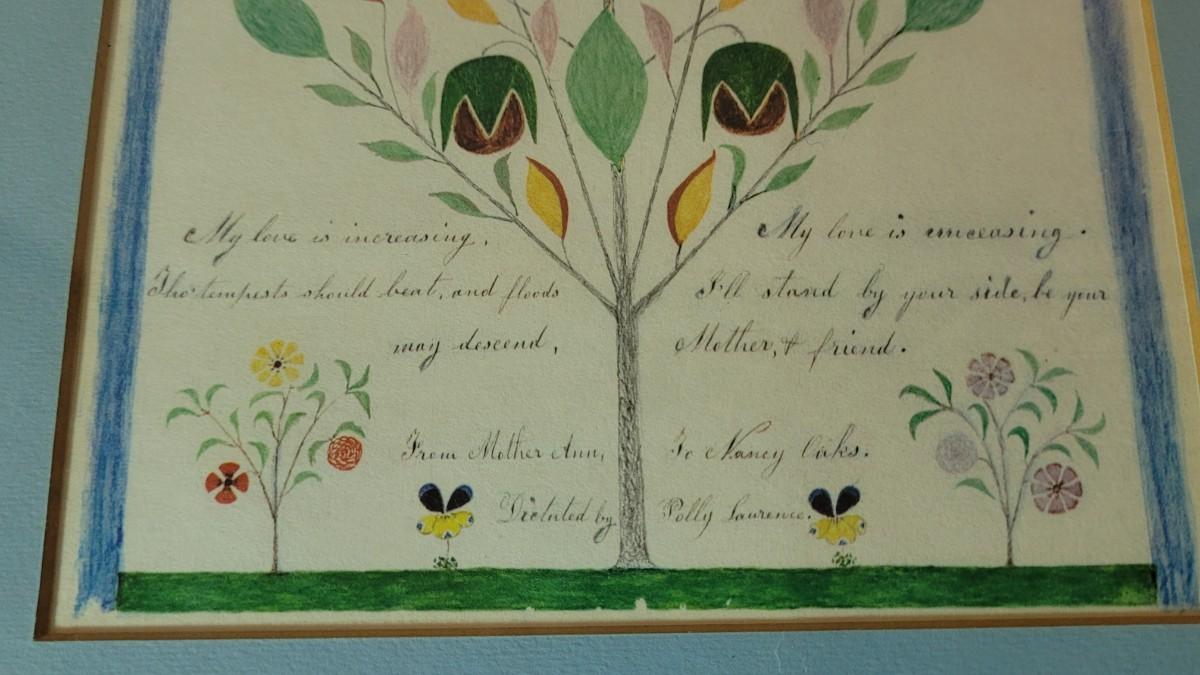 My love is increasing,
Tho' tempests should beat, and floods
may descend,
My love is unceasing.
I'll stand by your side, be your
Mother, & friend.
From Mother Ann,
To Nancy Oaks.
Dictated by
Polly Laurence.